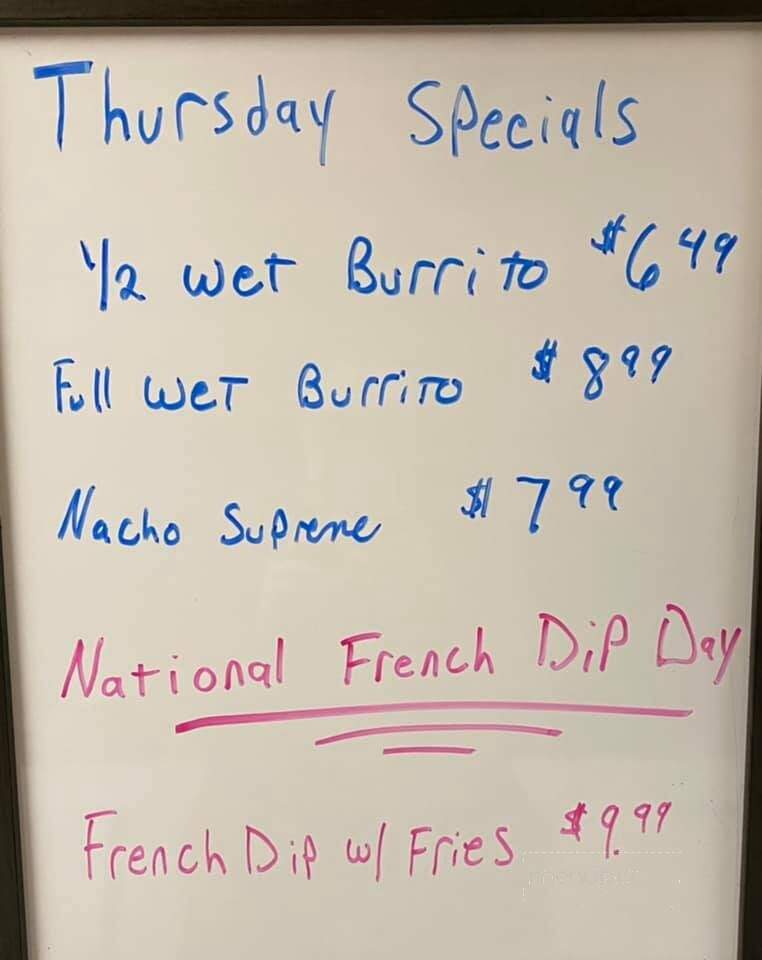 Thursday Specials
1/2 Wet Burrito $6 49
Full Wet Burrito $8 99
Nacho Supreme $7 99
National French Dip Day
French Dip w/ Fries $9.99